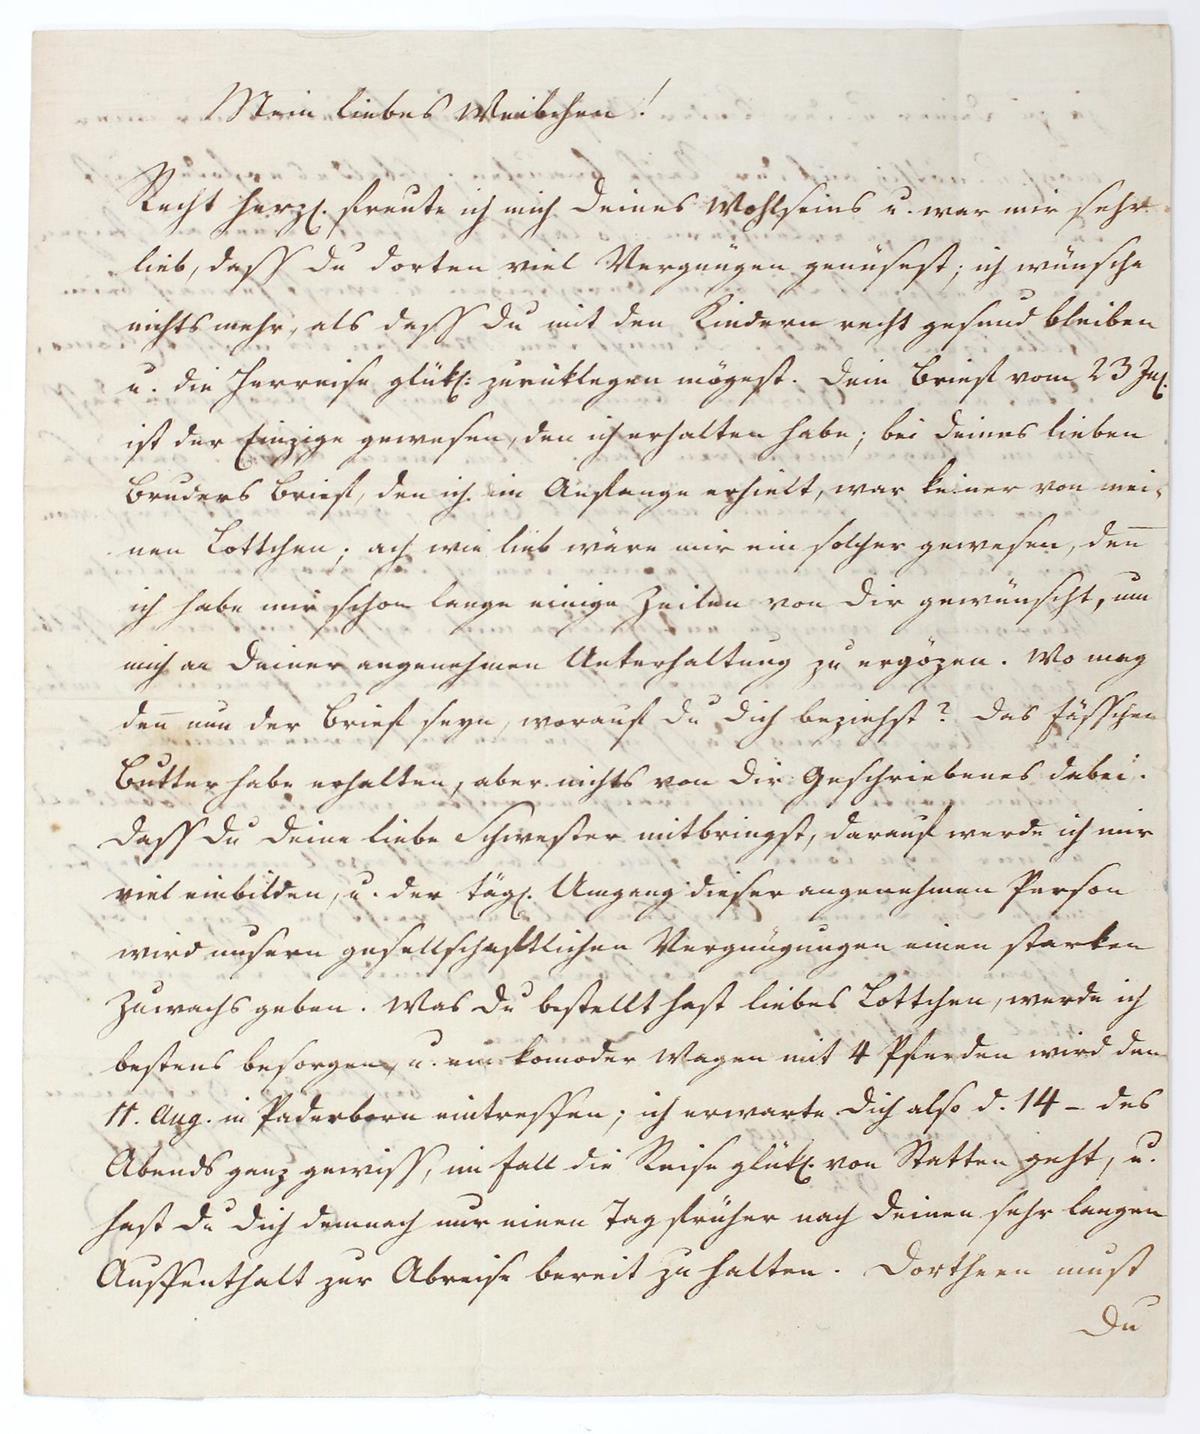 Mein liebes Weibchen!
Recht herzl. freute ich mich Deines Wohlseins u. war mir sehr
lieb, dass Du dorten viel Vergnügen genüsest; ich wünsche
nichts mehr, als dass Du mit den Kindern recht gesund bleiben
u. die Herreise glükl: zurüklegen mögest. Dein Brief vom 23 Jul.
ist der Einzige gewesen, den ich erhalten habe; bei Deines lieben
Bruders Brief, den ich im Anfange erhielt, war keiner von mei-
nen Lottchen; ach wie lieb wäre mir ein solcher gewesen, den̅
ich habe mir schon lange einige Zeilen von Dir gewünscht, um
mich an Deiner angenehmen Unterhaltung zu ergözen. Wo mag
den̅ nun der Brief seyn, worauf Du Dich beziehst? Das Fässchen
Butter habe erhalten, aber nichts von Dir Geschriebenes dabei.
Dass Du Deine liebe Schwester mitbringst, darauf werde ich mir
viel einbilden, u. der tägl. Umgang dieser angenehmen Person
wird unsern gesellschaftlichen Vergnügungen einen starken
Zuwachs geben. Was Du bestellt hast liebes Lottchen, werde ich
bestens besorgen, u. ein komoder Wagen mit 4 Pferden wird den
11. Aug. in Paderborn eintreffen; ich erwarte Dich also d. 14 – des
Abends ganz gewiss, im Fall die Reise glükl. von Statten geht, u.
hast Du Dich demnach nur einen Tag früher nach Deinen sehr langen
Auffenthalt zur Abreise bereit zu halten. Dortheen must
Du